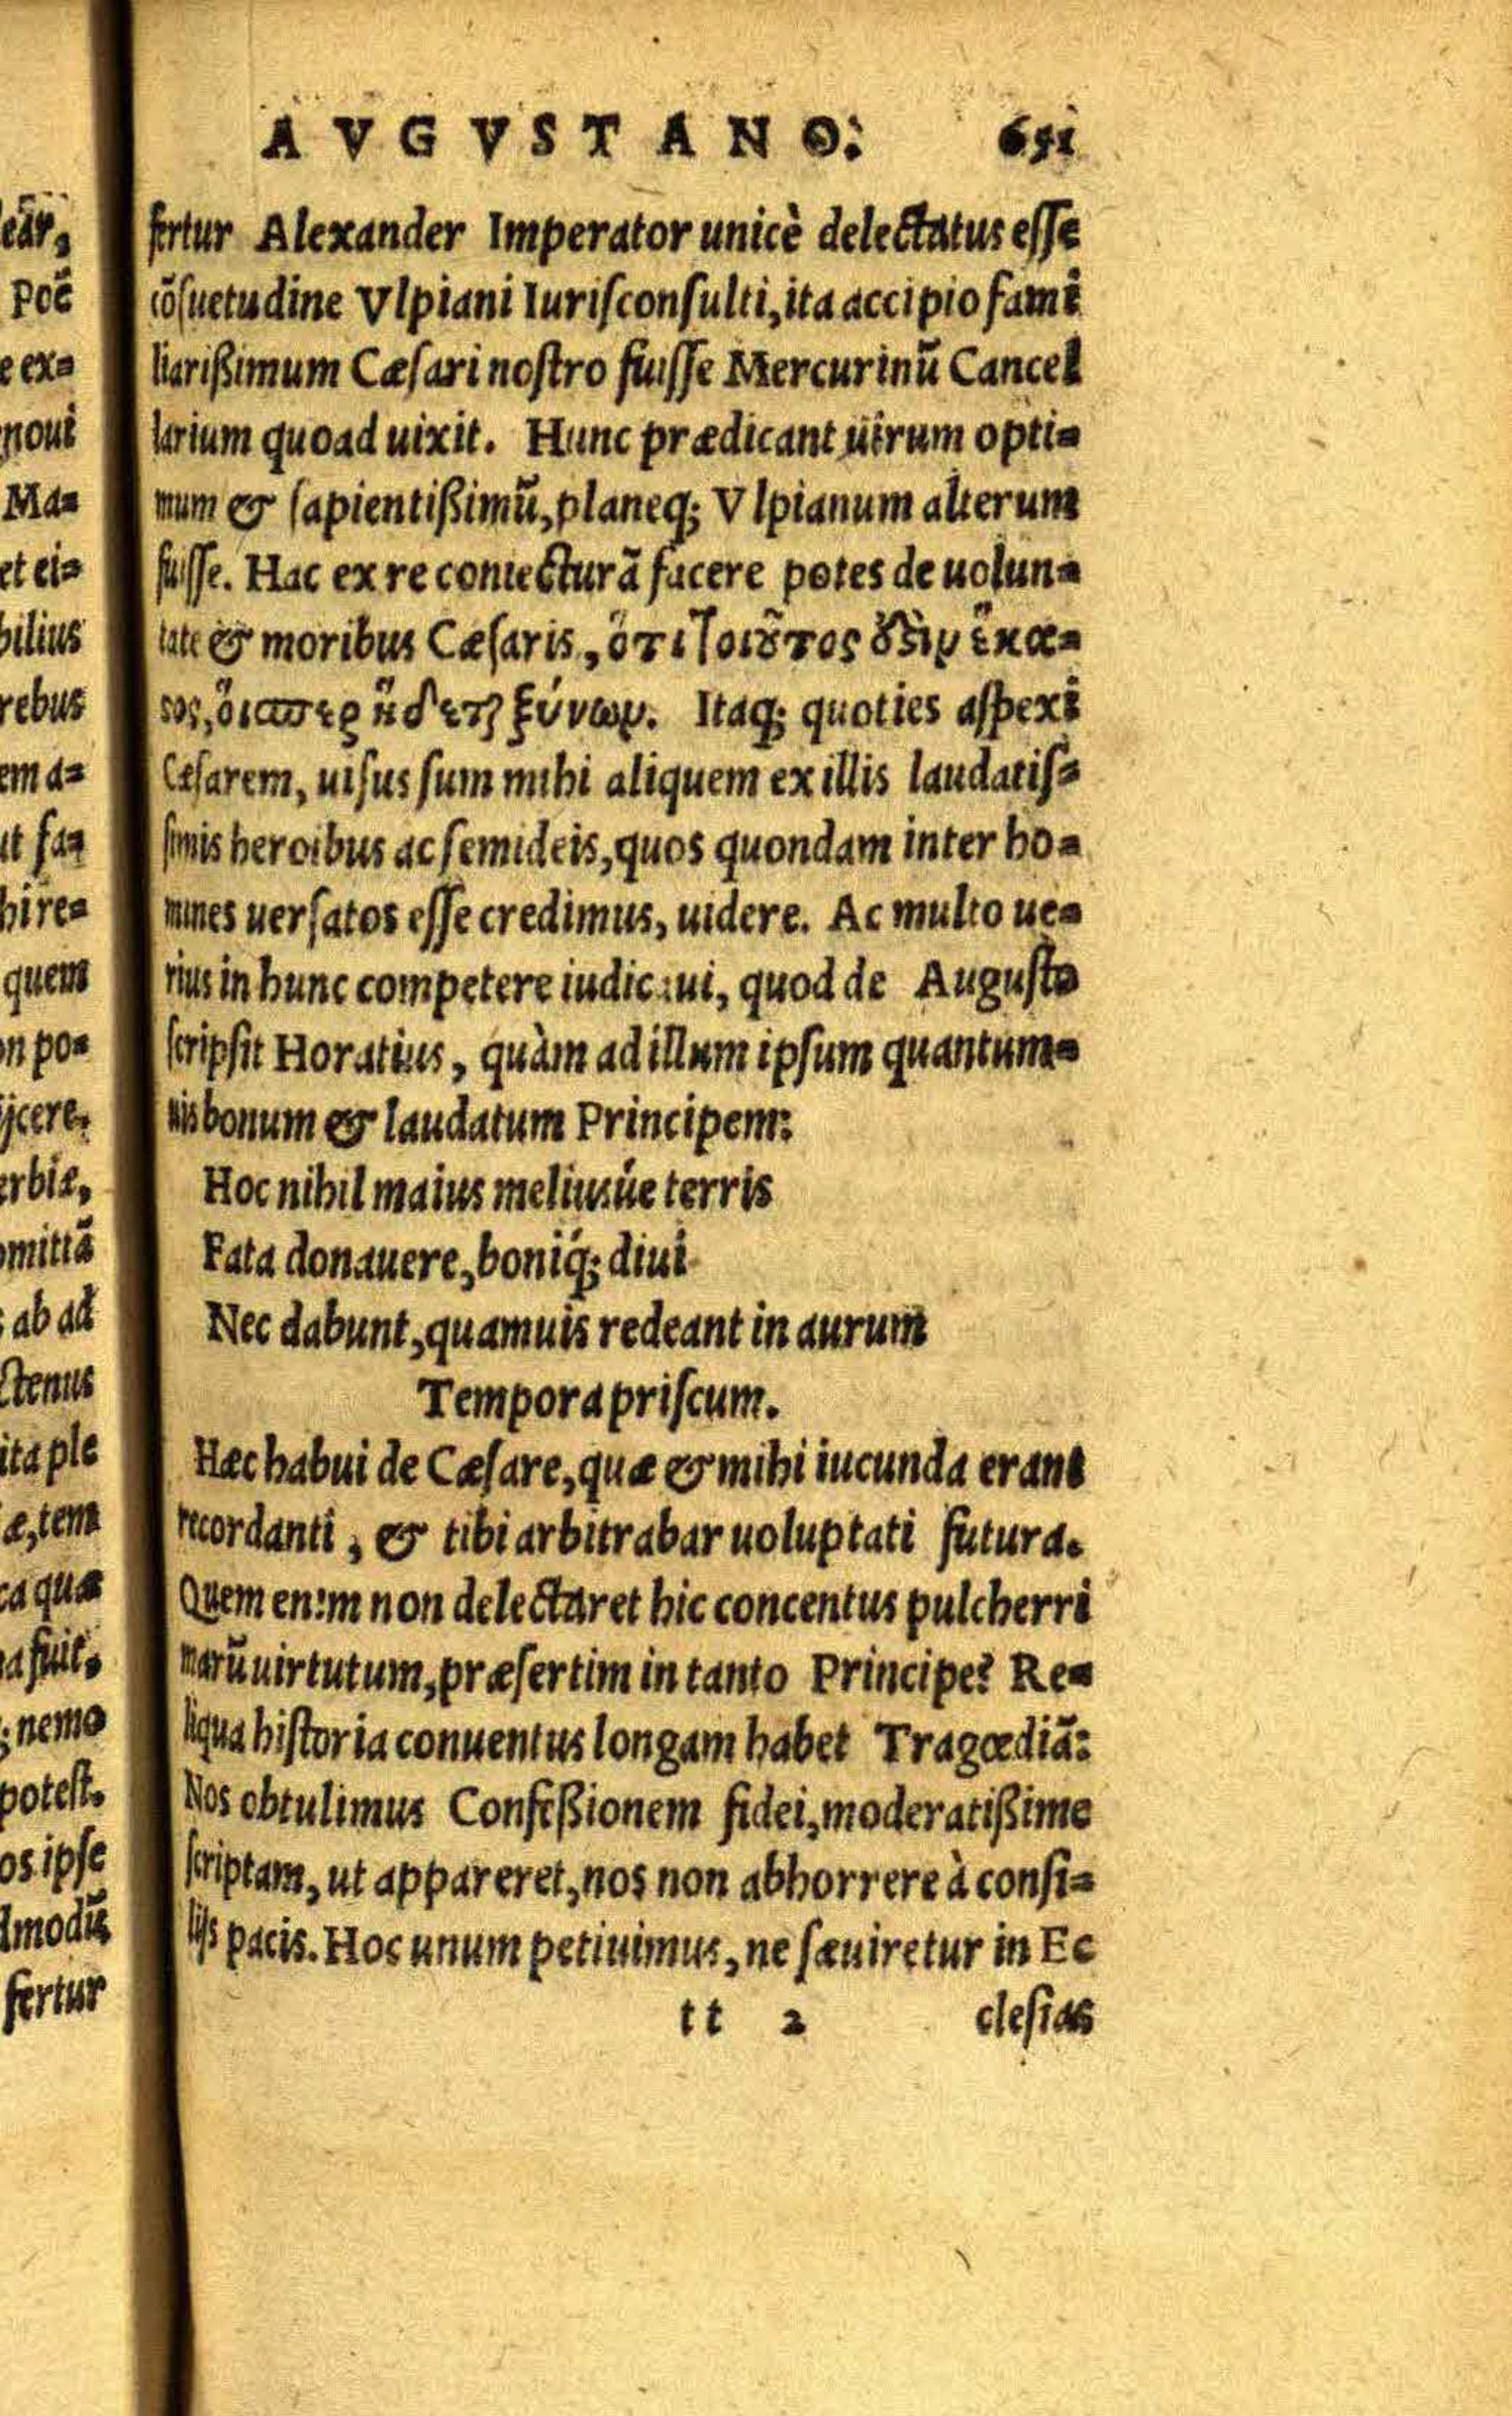 AVGVSTANO. 651
fertur Alexander Imperator unicè delectatus esse
cōsuetudine Vlpiani Iurisconsulti, ita accipio fami
liarißimum Cæsari nostro fuisse Mercurinū Cancel
larium quoad uixit. Hunc prædicant uirum opti=
mum & sapientißimū, planeq; Vlpianum alterum
fuisse. Hac ex re coniecturā facere potes de uolun=
tate & moribus Cæsaris, ὅτι τοιοῦτος ὅξιν ἕκα=
ϛος, ὅισπερ ἥδεται ξύνων. Itaq; quoties aspexi
Cæsarem, uisus sum mihi aliquem ex illis laudatis=
simis heroibus ac semideis, quos quondam inter ho=
mines uersatos esse credimus, uidere. Ac multo ue=
rius in hunc competere iudicaui, quod de Augusto
scripsit Horatius, quàm ad illum ipsum quantum=
uis bonum & laudatum Principem:
Hoc nihil maius meliusúe terris
Fata donauere, boniq́; diui
Nec dabunt, quamuis redeant in aurum
Tempora priscum.
Hæc habui de Cæsare, quæ & mihi iucunda erant
recordanti, & tibi arbitrabar uoluptati futura.
Quem enim non delectaret hic concentus pulcherri
marū uirtutum, præsertim in tanto Principe? Re=
liqua historia conuentus longam habet Tragœdiā:
Nos obtulimus Confeßionem fidei, moderatißime
scriptam, ut appareret, nos non abhorrere à consi=
lijs pacis. Hoc unum petiuimus, ne sæuiretur in Ec
tt 2 clesias
ear,
Poē
e ex=
noui
Ma=
et ei=
bilius
rebus
em a=
ut fa=
hire=
quem
on po=
ijcere.
erbiæ,
omittā
ab ad
ctenus
ita ple
æ, tem
ca quæ
a fuit,
; nemo
potest.
os ipse
lmodū
fertur